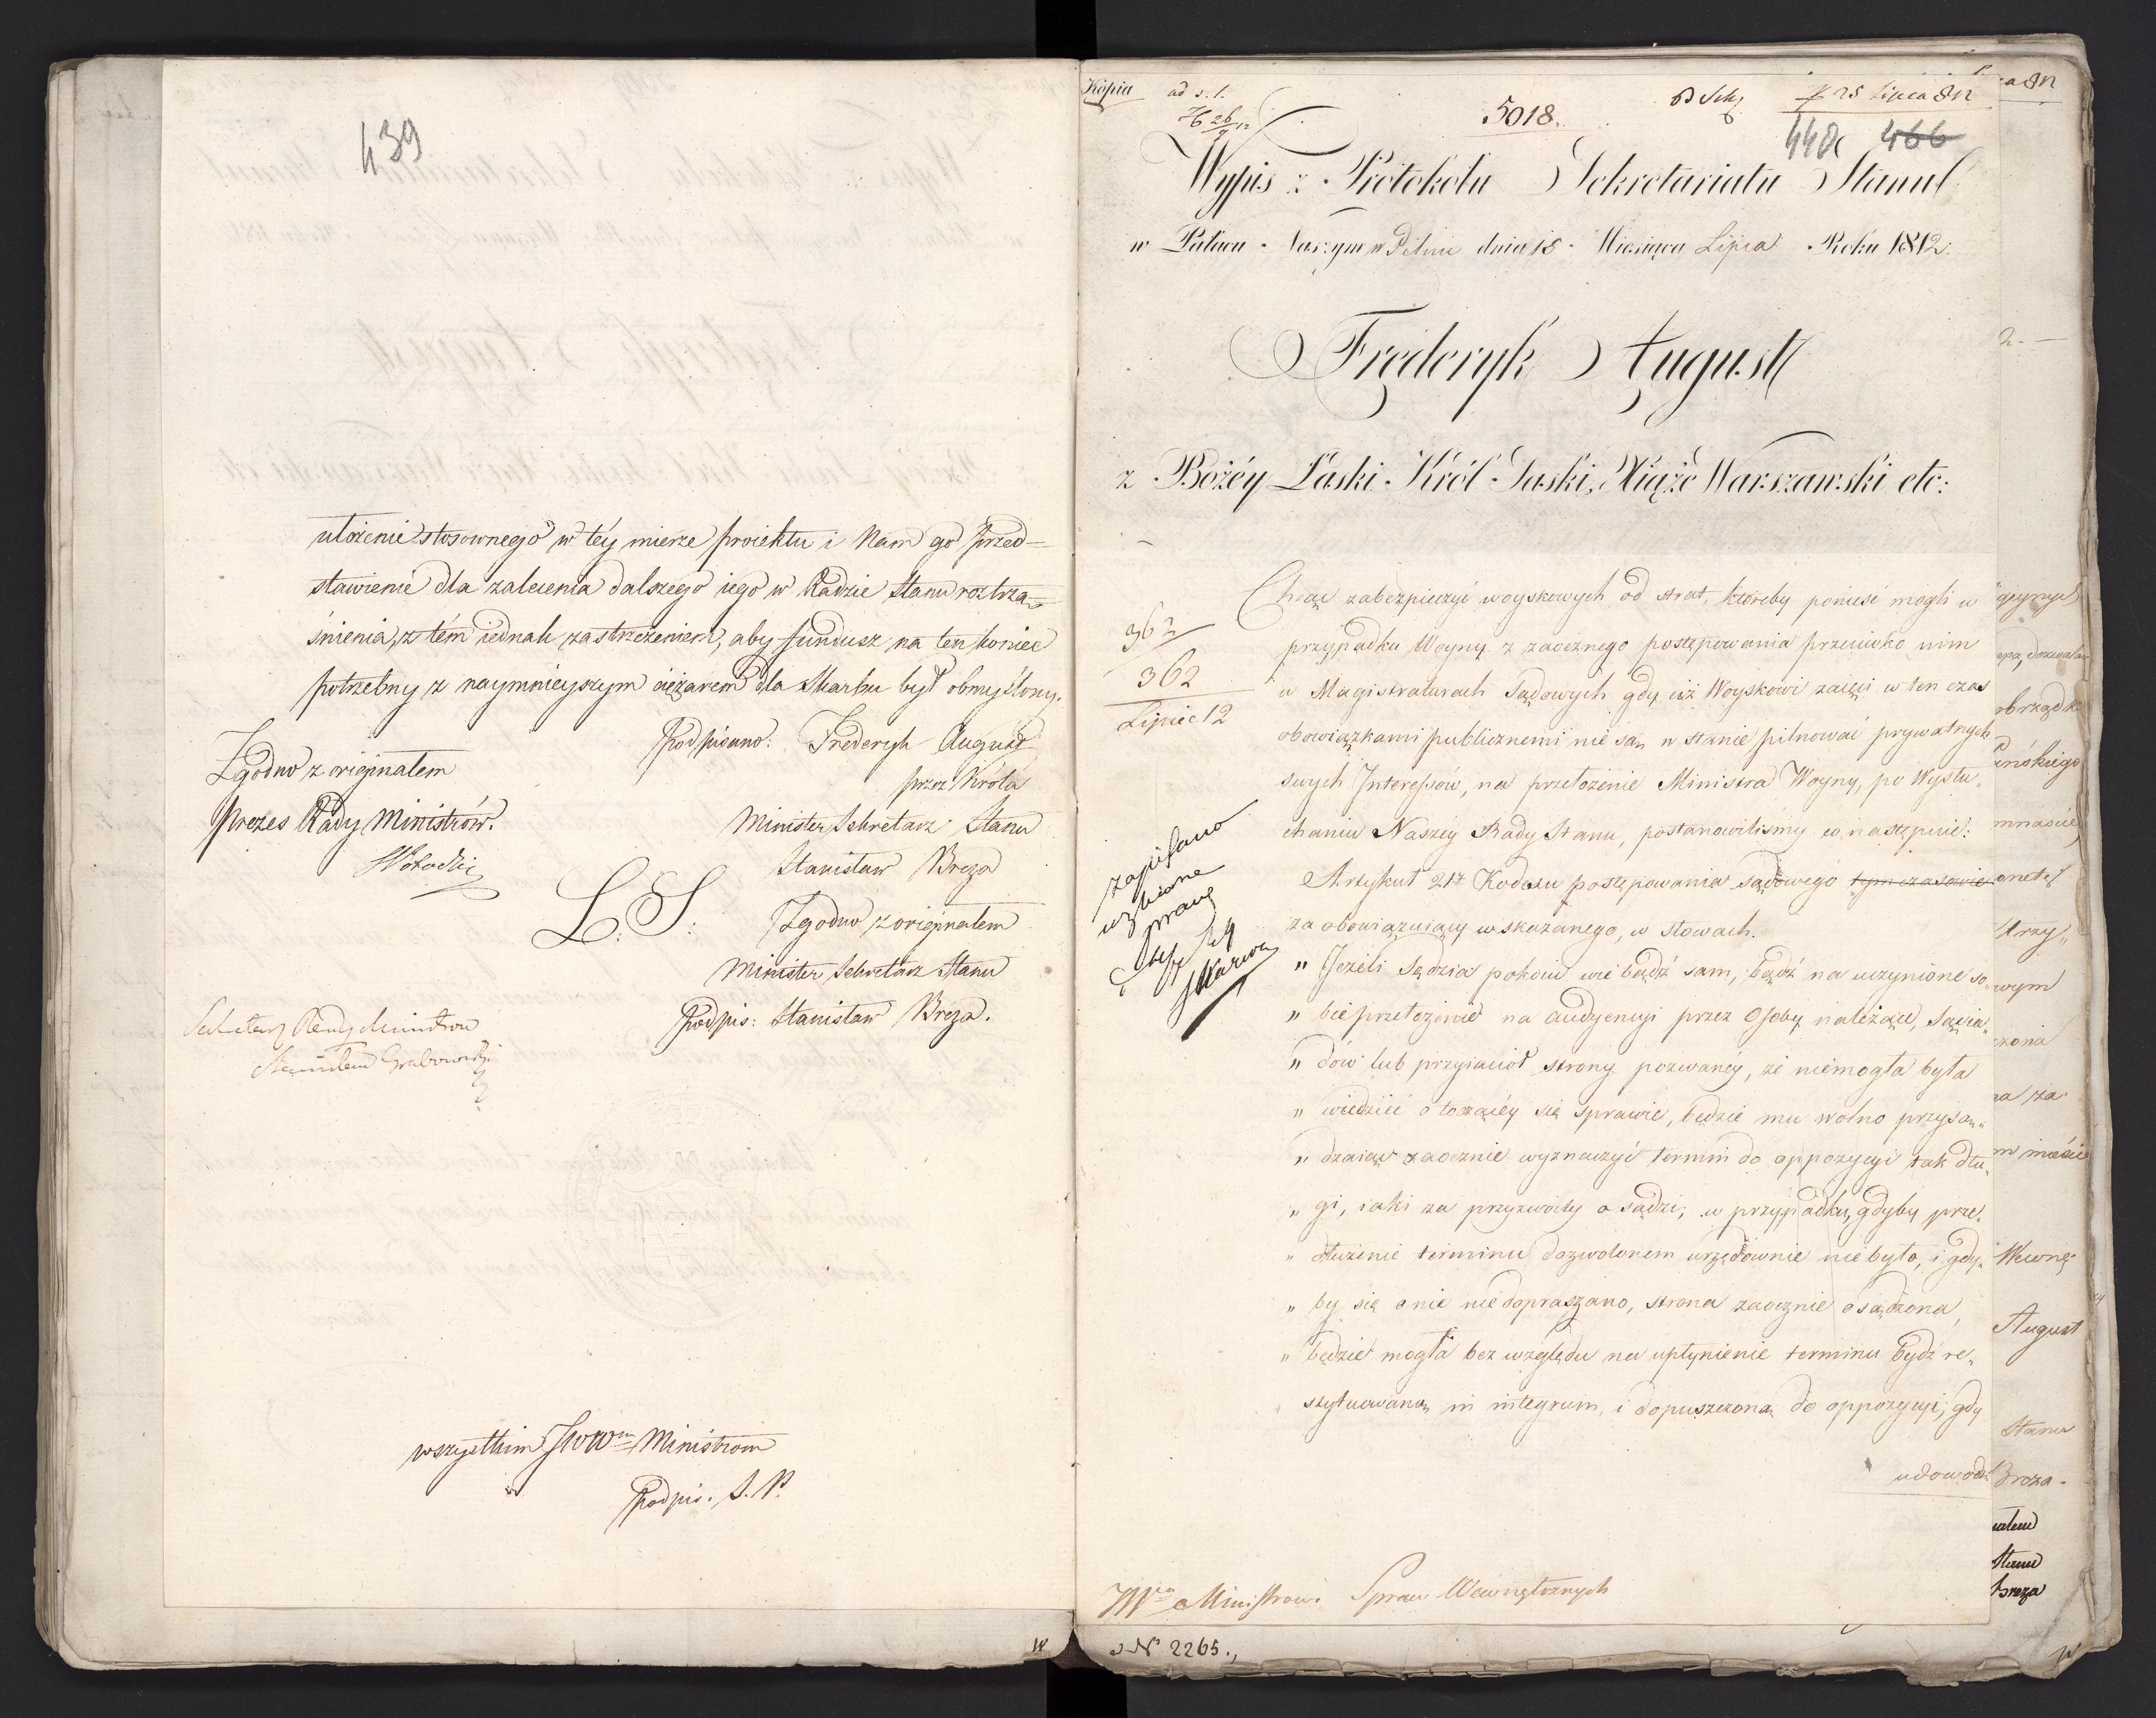 439
ułożenie stosownego w téy mierze proiektu i Nam go przed=
stawienie dla zalecenia dalszego iego w Radzie Stanu roztrzą=
śnienia, z tém iednak zastrzeżeniem, aby fundusz na ten koniec
potrzebny z naymnieyszym ciężarem dla Skarbu był obmyślony.
Podpisano: Frederyk August
Zgodno z originałem
przez Króla
Prezes Rady Ministrów.
Minister Sekretarz Stanu
Stanisław Breza
L. S.
Zgodno z originałem
Minister Sekretarz Stanu
Podpis: Stanisław Breza.
Sekretarz Rady Ministrów
Stanisław Grabowski
wszystkim JWWm Ministrom
Podpis. S. P.
Kopia
ad s. 1.
5018.
25 Lipca 812
440 466
Wypis z Protokołu Sekretariatu Stanu
w Pałacu Naszym w Pilnic dnia 15 Miesiąca Lipca Roku 1812.
Frederyk August
z Bożéy Łaski Król Saski, Xiąże Warszawski etc:
Chcąc zabezpieczyć woyskowych od strat, któreby ponieść mogli w
przypadku Woyny z zaocznego postępowania przeciwko nim
w Magistraturach Sądowych gdy iż Woyskowi zaięci w ten czas
obowiązkami publicznemi nie są w stanie pilnować prywatnych
swych Interessów, na przełożenie Ministra Woyny, po Wysłu„
chaniu Naszéy Rady Stanu, postanowiliśmy co następuie:
Artykuł 21y Kodexu postępowania sądowego tymczasowie
za obowiązuiący wskazanego, w słowach.
„ Jeżeli Sędzia pokoiu wie bądź sam, bądź na uczynione so„
„ bie przełożenie na audyencyi przez Osoby należące, Sąsia„
„ dów lub przyiaciół strony pozwanéy, że niemogła była
„ wiedzieć o toczącéy się sprawie, będzie mu wolno przysą„
„ dzaiąc zaocznie wyznaczyć termin do oppozycyi tak dłu„
„ gi, iaki za przyzwoity osądzi; w przypadku, gdyby prze„
„ dłużenie terminu dozwolonem urzędownie nie było, i gdy„
„ by się o nie niedopraszano, strona zaocznie osądzona,
„ będzie mogła bez względu na upłynienie terminu bydź re„
„ stytuowaną in integrum, i dopuszczoną do oppozycyi, gdy
udowodni
362
362
Lipiec 12
zapisano
JWu Ministrowi Spraw Wewnętrznych
N 2265.
August
Stanu
Breza
Stanu
Breza